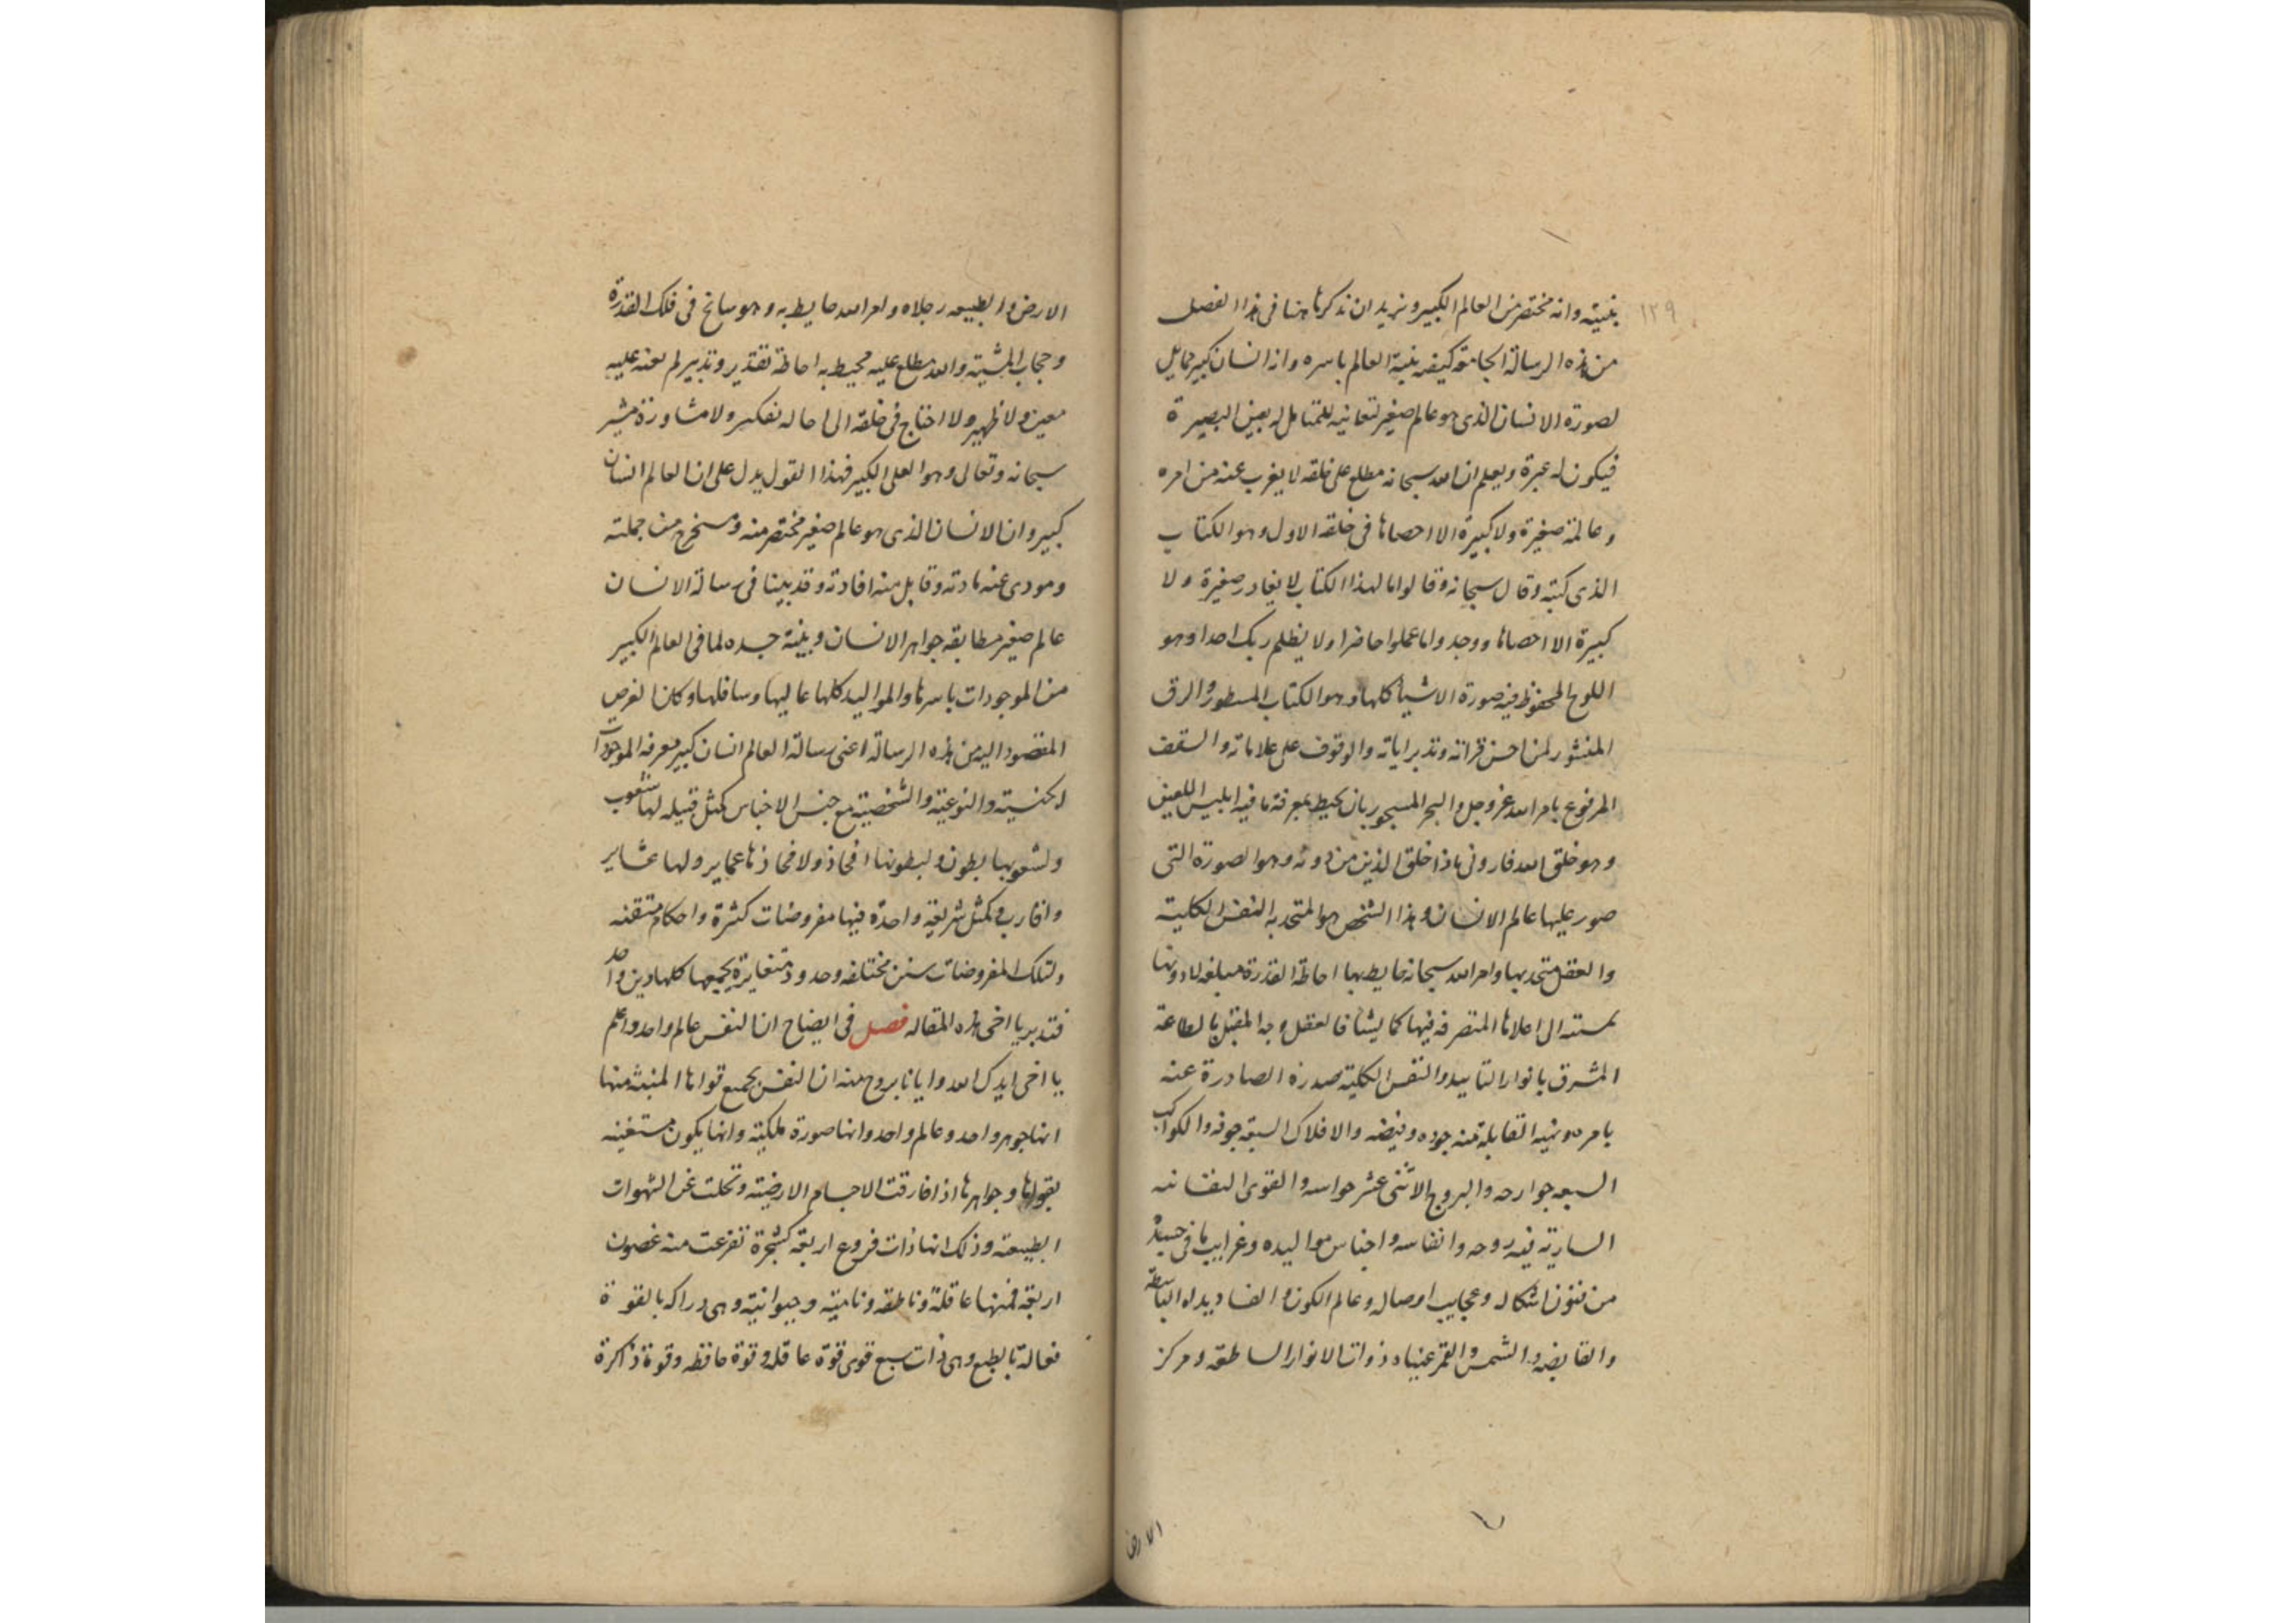 ١٢٩
بنيته وانه مختصر من العالم الكبير ونريد ان نذكر ها هنا فى هذا الفصل
من هذه الرسالة الجامعة كيفيه بنية العالم باسره وانه انسان كبير مماثل
لصورة الانسان الذى هو عالم صغير لتعاينه للمتامل له بعين البصيرة
فيكون له عبرة ويعلم ان الله سبحانه مطلع على خلقه لا يغرب عنه من امره
وعالمه صغيرة ولا كبيرة الا احصاها فى خلقه الاول وهو الكتاب
الذى كتبه وقال سبحانه وقالوا ما لهذا الكتاب لا يغادر صغيرة ولا
كبيرة الا احصاها ووجدوا ما عملوا حاضرا ولا يظلم ربك احدا وهو
اللوح المحفوظ فيه صورة الاشيا كلها وهو الكتاب المسطور والرق
المنشور لمن احسن قراته وتدبر اياته والوقوف على علاماته والسقف
المرفوع بامر الله عز وجل والبحر المسجور بان يحيط بمعرفة ما فيه ابليس اللعين
وهو خلق الله فارونى ماذا خلق الذين من دونه وهو الصورة التى
صور عليها عالم الانسان وهذا الشخص هو المتحد به النفس الكلية
والعقل متحد بها وامر الله سبحانه حايط بها احاطة القدرة مبلغه لادونها
بمسته الى اعلاها المتصرفه فيها كما يشا فالعقل وجه المقبل بالطاعة
المشرق بانوار التاييد والنفس الكلية صدره الصادرة عنه
بامره ونهيه القابلة منه جوده وفيضه والافلاك السبعة جوفه والكواكب
السبعه جوارحه والبروج الاثنى عشر حواسه والقوى النفسانيه
السارية فيه روحه وانفاسه واجناس مواليده وغرايب ما فى جسده
من فنون اشكاله وعجايب اوصاله وعالم الكون والفساد يداه الباسطة
والقابضه والشمس والقمر عيناه ذواتا الانوار الساطعة ومركز
الارض
الارض والطبيعه رجلاه وامر الله حايط به وهو سايح فى فلك القدرة
وحجاب المشية والله مطلع عليه محيط به احاطة تقدير وتدبير لم يعنه عليه
معين ولا ظهير ولا احتاج فى خلقه الى احاله تفكير ولا مشاورة مشير
سبحانه وتعالى وهو العلى الكبير فهذا القول يدل على ان العالم انسان
كبير وان الانسان الذى هو عالم صغير مختصر منه ومستخرج من جملته
ومودى عنه مادته وقابل منه افادته وقد بينا فى رسالة الانسان
عالم صغير مطابقه جواهر الانسان وبنية جسده لما فى العالم الكبير
من الموجودات باسرها والمواليد كلها عاليها وسافلها وكان الغرض
المقصود اليه من هذه الرسالة اعنى رسالة العالم انسان كبير معرفه الموجودات
الجنسية والنوعية والشخصية مع جنس الاجناس كمثل قبيله لها شعوب
ولشعوبها بطون ولبطونها افخاذ ولافخاذها عماير ولها عشاير
واقارب وكمثل شريعة واحدة فيها مفروضات كثيرة واحكام متقنه
ولتلك المفروضات سنن مختلفه وحدود متغايرة يجمعها كلها دين واحد
فتدبر يا اخى هذه المقاله فصل فى ايضاح ان النفس عالم واحد واعلم
يا اخى ايدك الله وايانا بروح منه ان النفس بجميع قواها المنبثه منها
انها جوهر واحد وعالم واحد وانها صورة ملكية وانها يكون مستغنيه
بقواها وجواهرها اذا فارقت الاجسام الارضية وتخلت عن الشهوات
الطبيعة وذلك انها ذات فروع اربعه كشجرة تفرعت منه غصون
اربعة فمنها عاقلة وناطقه وناميه وحيوانية وهى دراكه بالقوة
فعالة بالطبع وهى ذات سبع قوى قوة عاقله وقوة حافظه وقوة ذاكرة